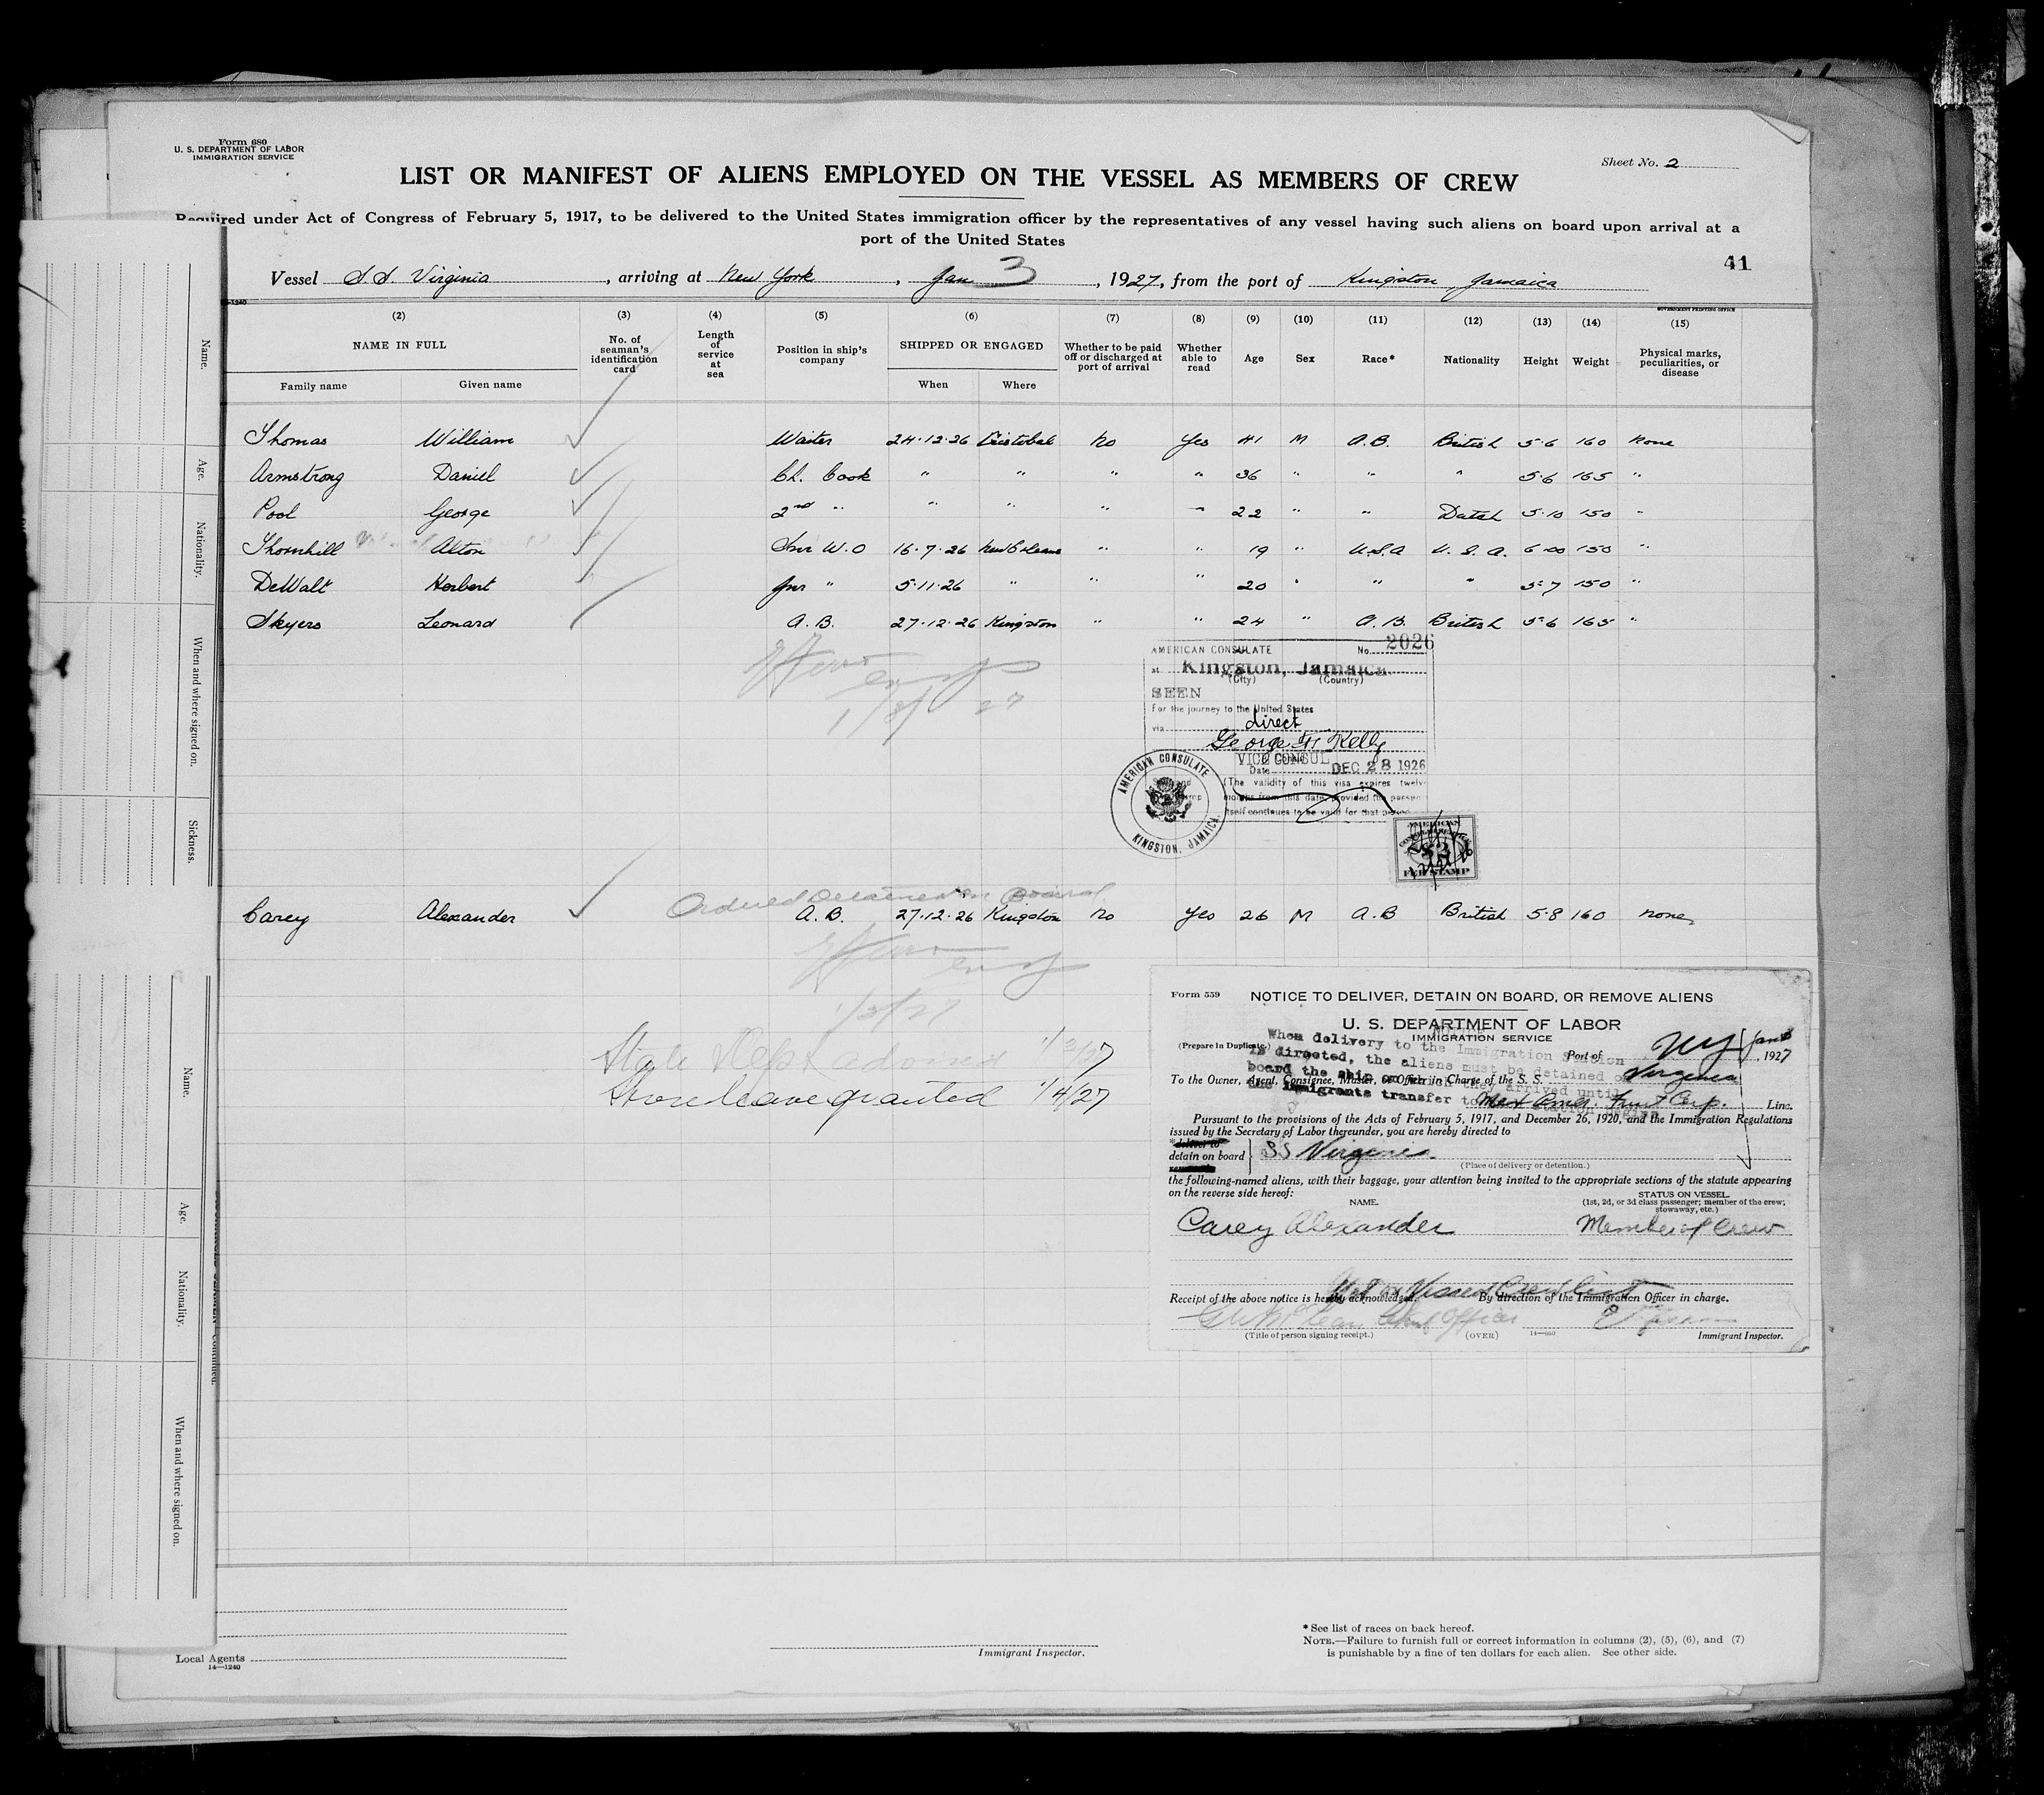 Form 680
U. S. DEPARTMENT OF LABOR
IMMIGRATION SERVICE
Sheet No. 2
LIST OR MANIFEST OF ALIENS EMPLOYED ON THE VESSEL AS MEMBERS OF CREW
Required under Act of Congress of February 5, 1917, to be delivered to the United States immigration officer by the representatives of any vessel having such aliens on board upon arrival at a
port of the United States
41
Vessel S.S. Virginia, arriving at New York, Jan 3, 1927, from the port of Kingston, Jamaica
GOVERNMENT PRINTING OFFICE
(2) (3) (4) (5) (6) (7) (8) (9) (10) (11) (12) (13) (14) (15)
NAME IN FULL No. of seaman's identification card Length of service at sea Position in ship's company SHIPPED OR ENGAGED Whether to be paid off or discharged at port of arrival Whether able to read Age Sex Race* Nationality Height Weight Physical marks, peculiarities, or disease
Family name Given name When Where
Thomas William Waiter 24.12.26 Cristobal No Yes 41 M A.B. British 5.6 160 None
Armstrong Daniel Ch. Cook " " " " 36 " " " 5.6 165 "
Pool George 2nd " " " " " 22 " " Dutch 5.10 150 "
Thornhill Alton Snr W.O 16.7.26 New Orleans " " 19 " U.S.A U.S.A. 6.00 150 "
DeWalt Herbert Jnr " 5.11.26 " " " 20 " " " 5.7 150 "
Skyers Leonard A.B. 27.12.26 Kingston " " 24 " A.B. British 5.6 165 "
AMERICAN CONSULATE No. 2026
at Kingston, Jamaica.
(City) (Country)
SEEN
For the journey to the United States
via direct
George H Kelly
VICE CONSUL
Date DEC 28 1926
(The validity of this visa expires twelve
months from this date, provided the passport
itself continues to be valid for that period
AMERICAN CONSULATE
KINGSTON, JAMAICA
AMERICAN
$2
FEE STAMP
Ordered Detained on Board
Carey Alexander A.B. 27.12.26 Kingston No Yes 26 M A.B British 5.8 160 None
1/3/27
State Dept advised 1/3/27
Shore leave granted 1/4/27
Form 559
NOTICE TO DELIVER, DETAIN ON BOARD, OR REMOVE ALIENS
U. S. DEPARTMENT OF LABOR
IMMIGRATION SERVICE
(Prepare in Duplicate.)
NOTICE
When delivery to the Immigration Station
is directed, the aliens must be detained on
board the ship on which they arrived until
the immigrants transfer to
Port of NY Jan 3, 1927
To the Owner, Agent, Consignee, Master, or Officer in Charge of the S. S. Virginia
Mex Amer. Fruit Corp. Line.
Pursuant to the provisions of the Acts of February 5, 1917, and December 26, 1920, and the Immigration Regulations
issued by the Secretary of Labor thereunder, you are hereby directed to
detain on board SS Virginia
(Place of delivery or detention.)
the following-named aliens, with their baggage, your attention being invited to the appropriate sections of the statute appearing
on the reverse side hereof:
NAME. STATUS ON VESSEL.
(1st, 2d, or 3d class passenger; member of the crew; stowaway, etc.)
Carey Alexander Member of Crew
Not on Vissed Crew List
Receipt of the above notice is hereby acknowledged. By direction of the Immigration Officer in charge.
Chief Officer
(Title of person signing receipt.) (OVER) 14—680 Immigrant Inspector.
Name.
Age.
Nationality.
When and where signed on.
Sickness.
Name.
Age.
Nationality.
When and where signed on.
Local Agents
14—1240
Immigrant Inspector.
* See list of races on back hereof.
NOTE.—Failure to furnish full or correct information in columns (2), (5), (6), and (7)
is punishable by a fine of ten dollars for each alien. See other side.